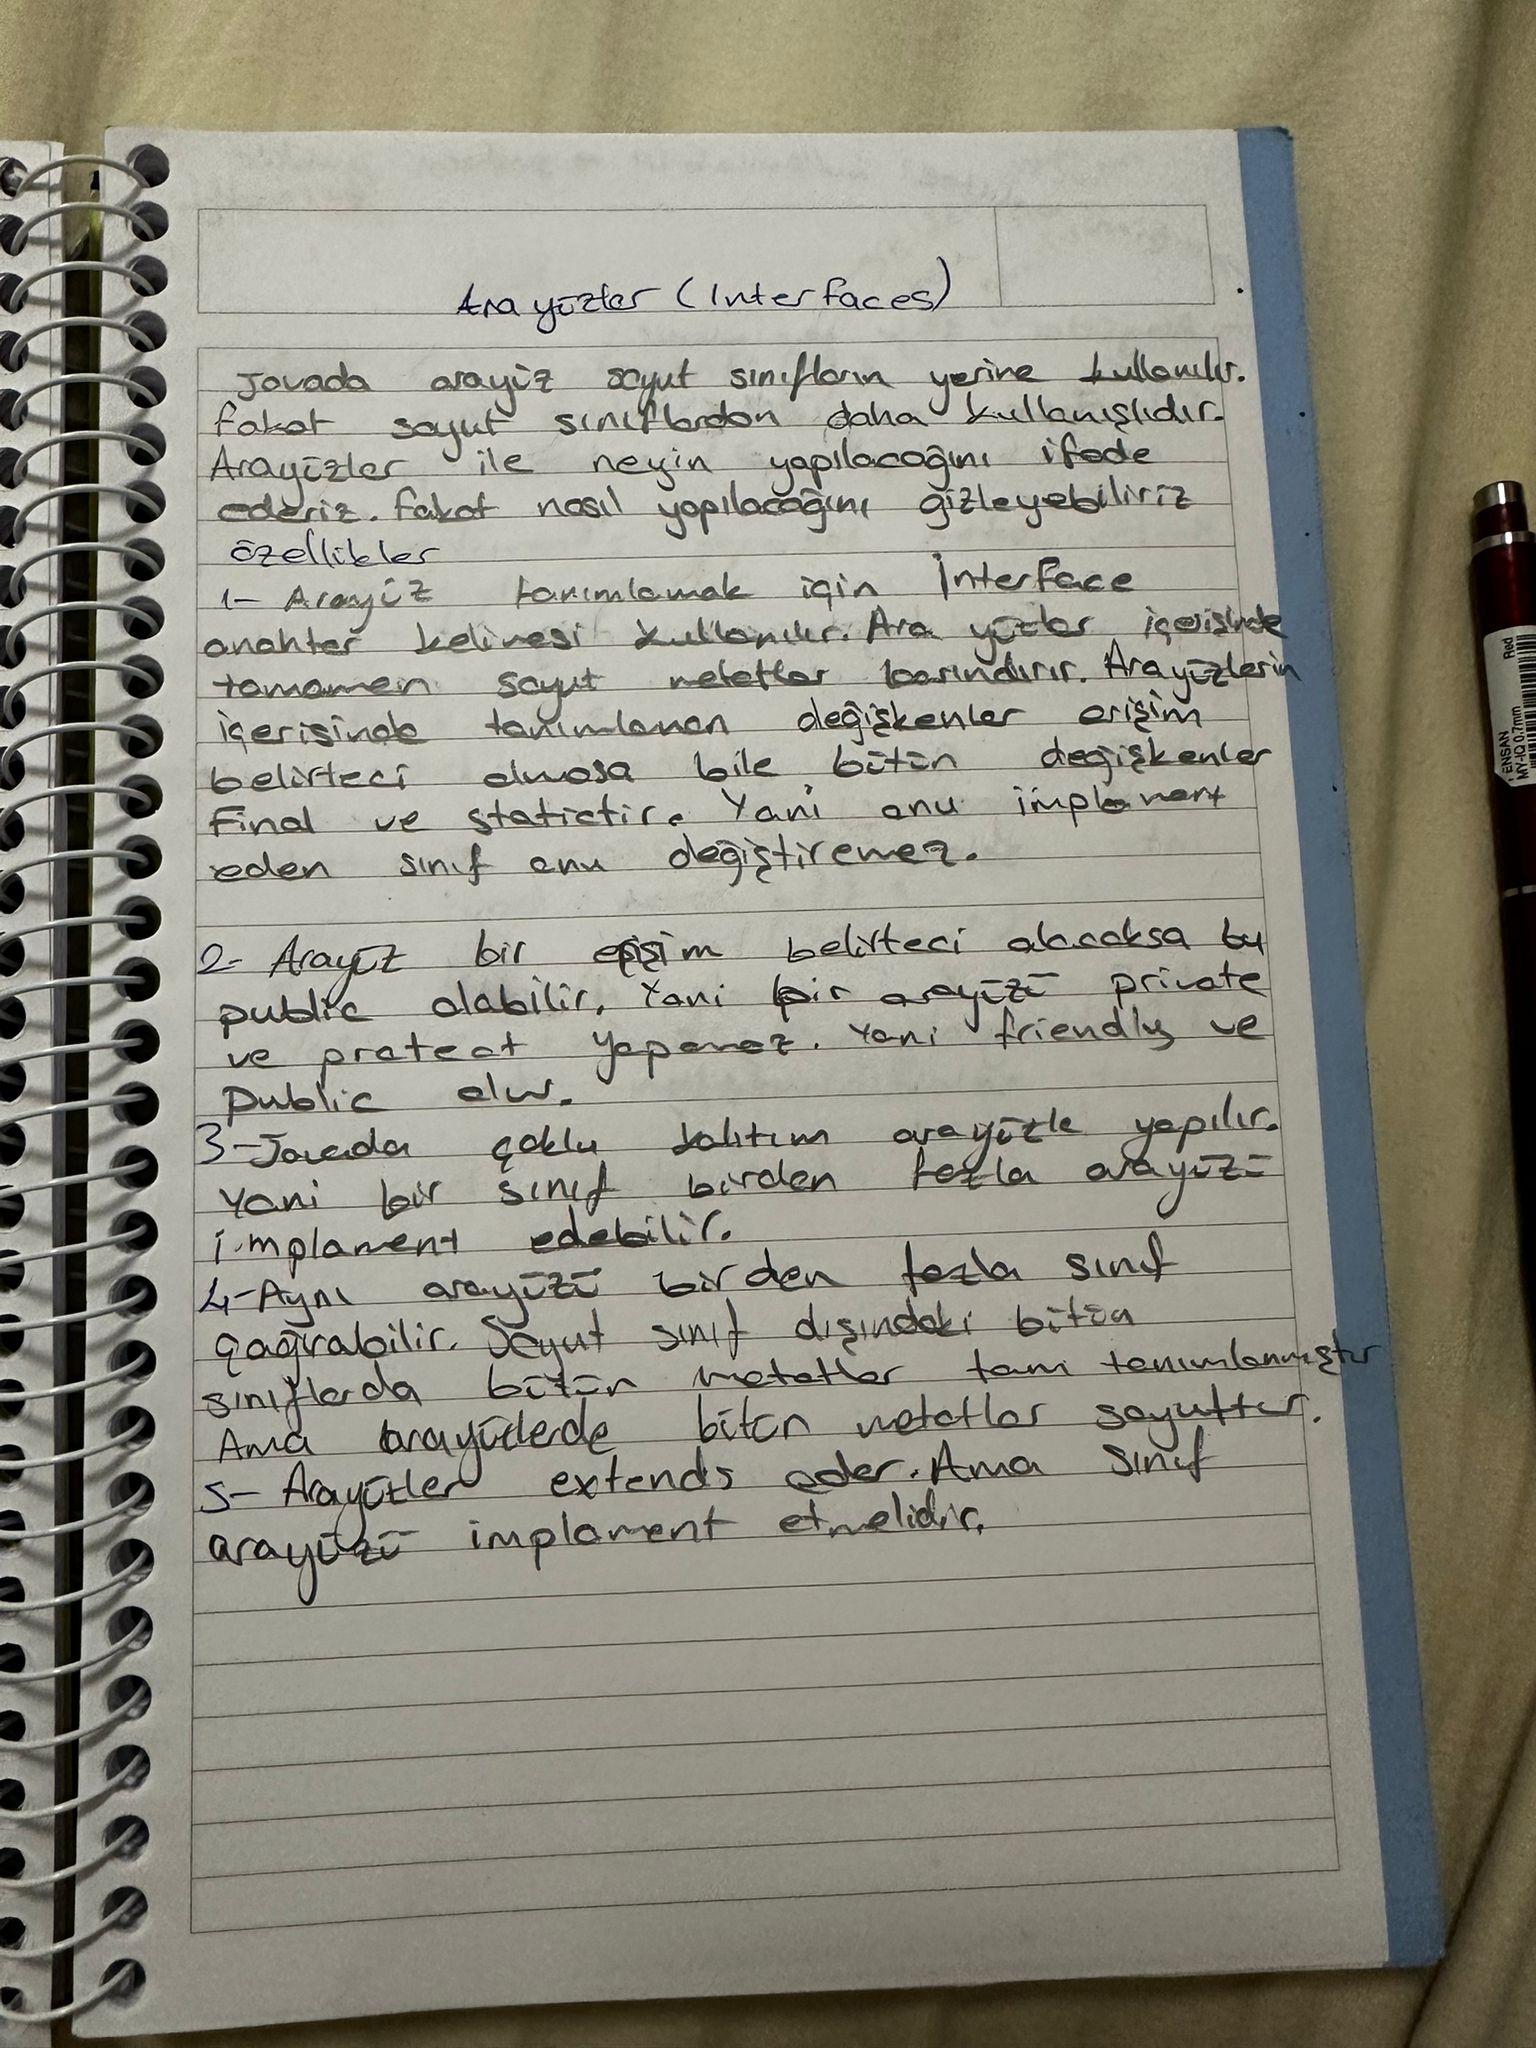 Arayüzler (Interfaces)
Javada arayüz soyut sınıfların yerine kullanılır.
fakat soyut sınıflardan daha kullanışlıdır.
Arayüzler ile neyin yapılacağını ifade
ederiz. fakat nasıl yapılacağını gizleyebiliriz
özellikler
1- Arayüz tanımlamak için İnterface
anahter kelimesi kullanılır. Ara yüzler içerisinde
tamamen soyut metotlar barındırır. Arayüzlerin
içerisinde tanımlanan değişkenler erişim
belirteci olmasa bile bütün değişkenler
Final ve statictir. Yani onu implament
eden sınıf onu değiştiremez.
2- Arayüz bir erişim belirteci alacaksa bu
public olabilir. Yani bir arayüzü private
ve protect yapamaz. Yani friendly ve
Public olur.
3- Javada çoklu kalıtım arayüzle yapılır.
Yani bir sınıf birden fazla arayüzü
implament edebilir.
4- Aynı arayüzü birden fazla sınıf
çağırabilir. Soyut sınıf dışındaki bütün
sınıflarda bütün metotlar tam tanımlanmıştır
Ama arayüzlerde bütün metotlar soyuttur.
5- Arayüzler extends eder. Ama sınıf
arayüzü implament etmelidir.
ENSAN
MY-IQ 0.7mm
Red